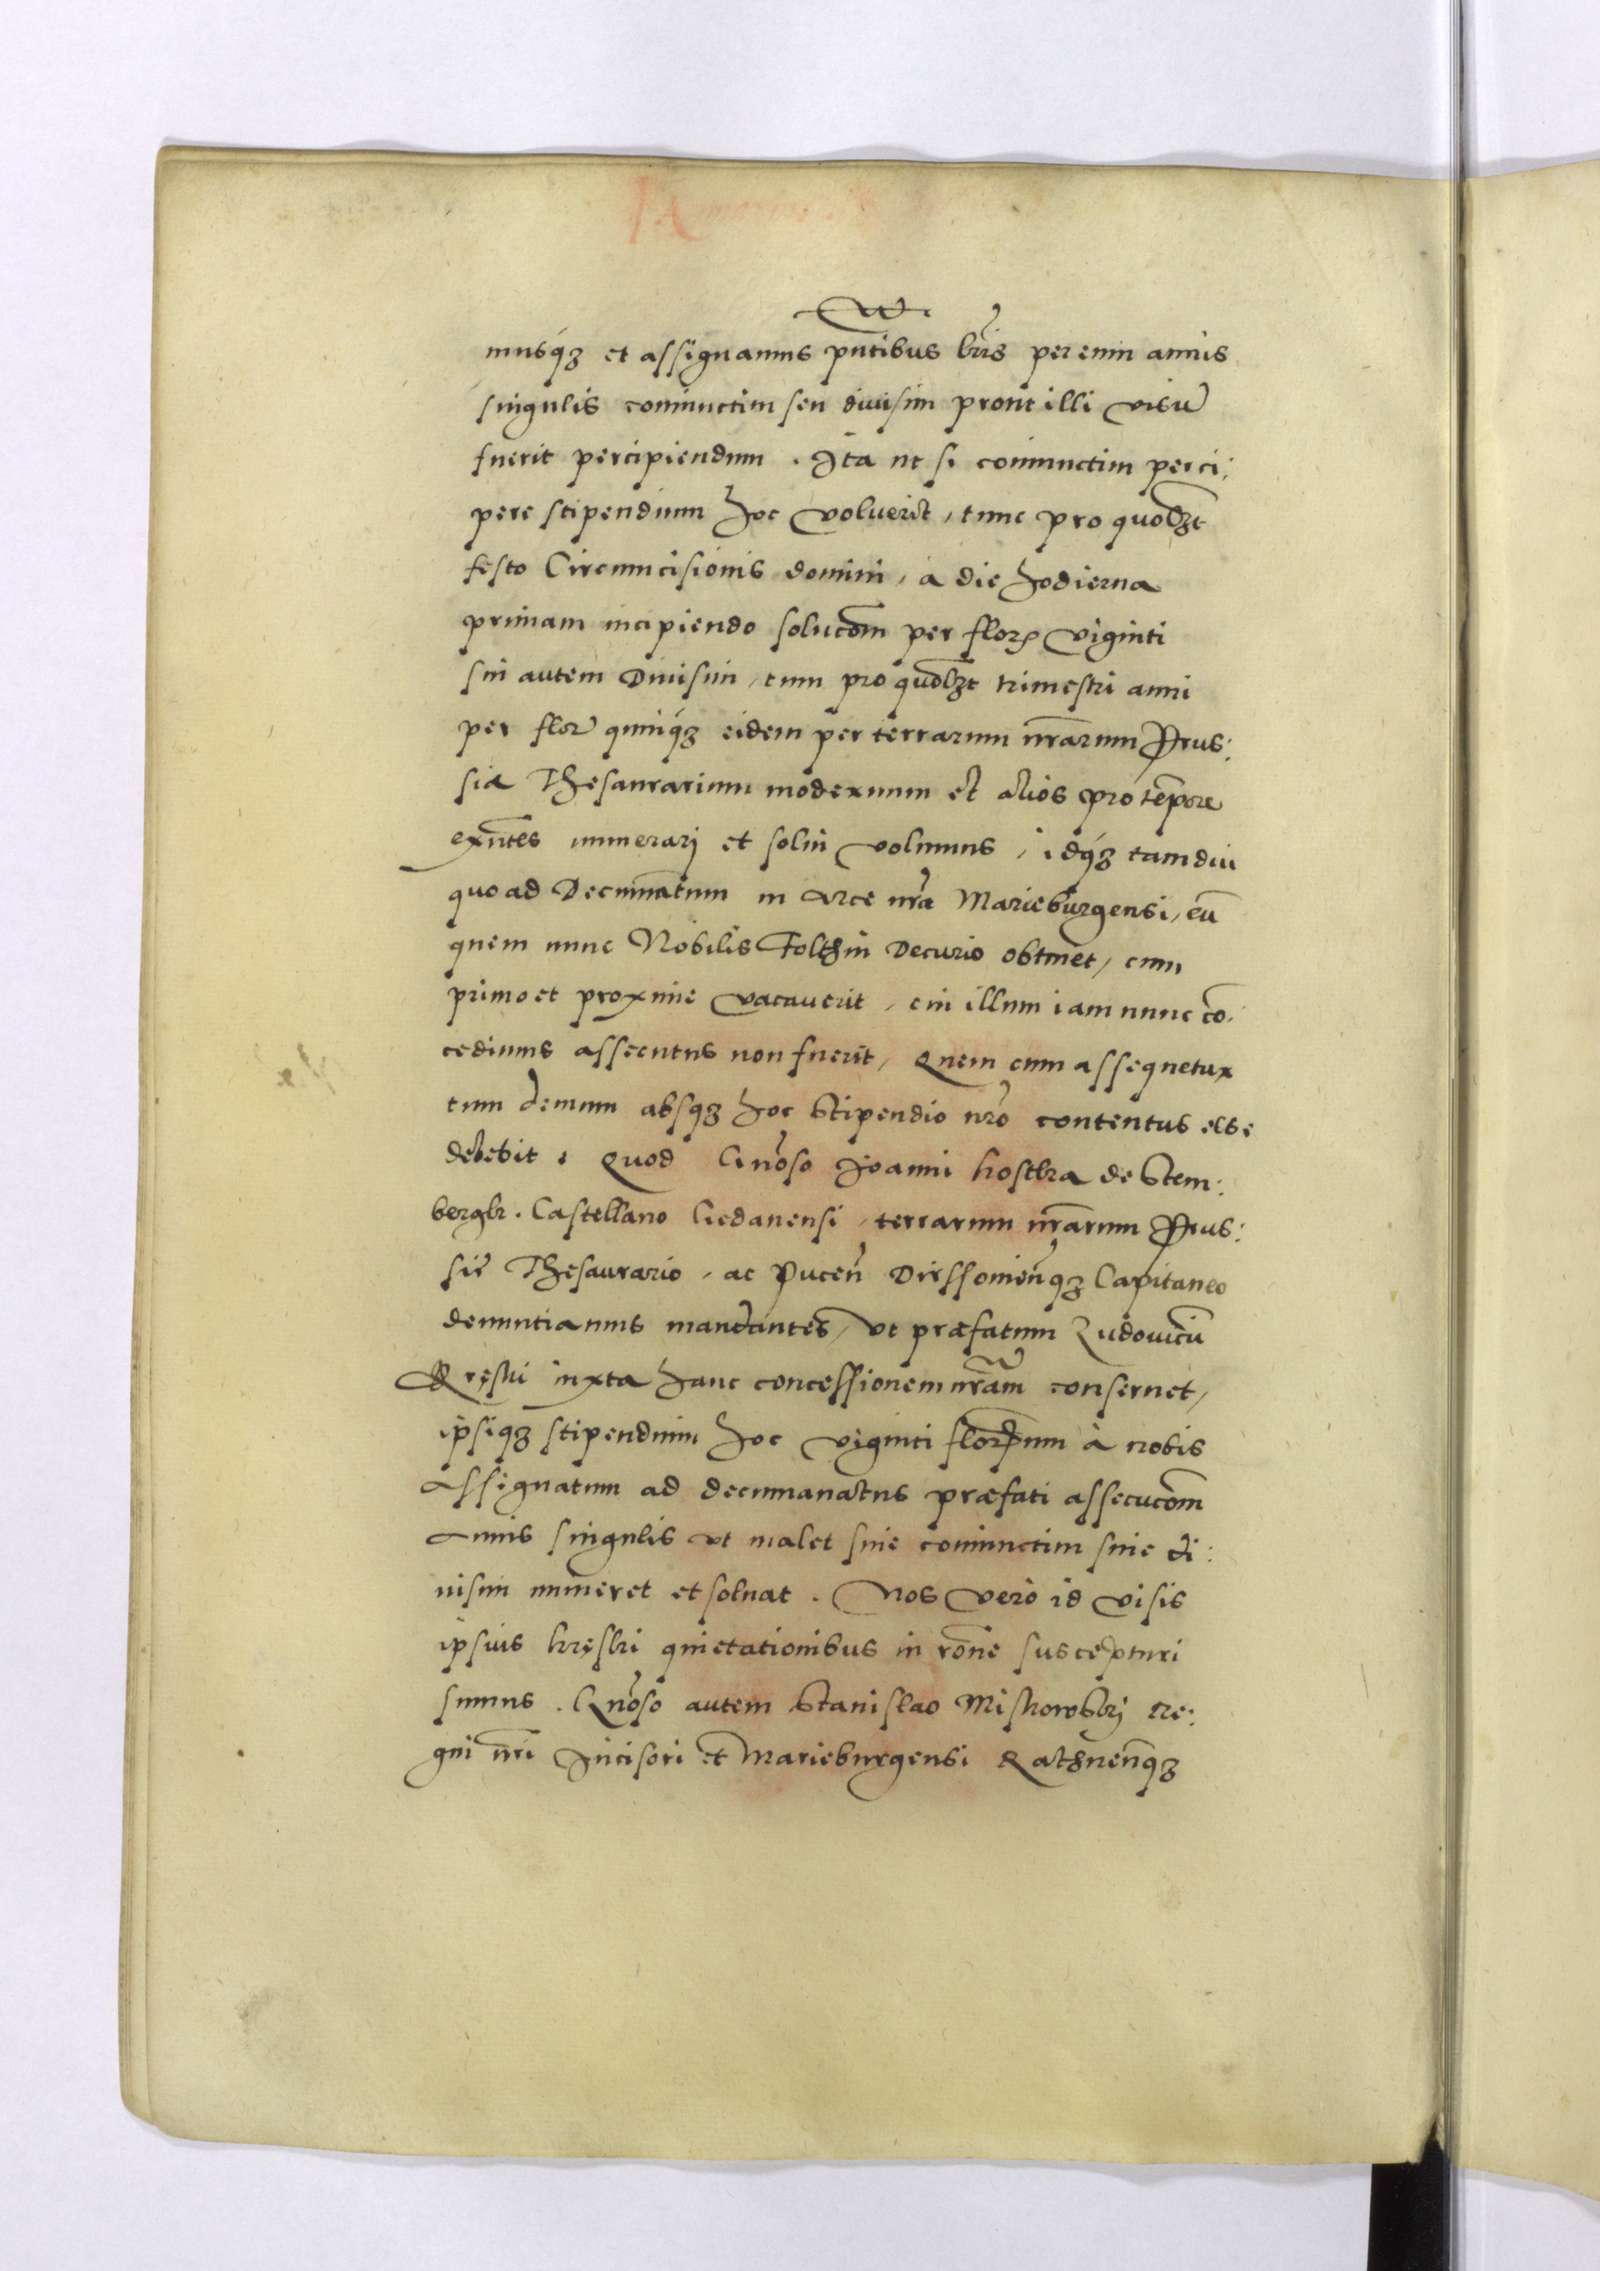 musq́ꝫ et assignamus pntĩbus lrĩs per eum annis
singulis coniunctim seu diuisim prout illi visũ
fuerit percipiendum. Ita ut si coniunctim perci:
pere stipendium hoc voluerit, tunc pro quolꝫt
festo Circumcisionis domini, a die hodierna
primam incipiendo solucõm per flor viginti
sin autem Diuisim, tum pro quolꝫt trimestri anni
per flor quinq́ꝫ eidem per terrarum nrãrum Prus:
siæ Thesaurarium modernum et alios pro tempore
exñtes numerari et solui volumus, idq́ꝫ tam diu
quo ad Decumanatum in Arce nrã Marieburgensi, eũ
quem nunc Nobilis Folthin Decurio obtinet, cum
primo et proxime vacauerit, cui illum iam nunc cõ:
cedimus assecutus non fuerit, Quem cum assequetur
tum demum absqꝫ hoc stipendio nrõ contentus esse
debebit. Quod Gnõso Ioanni Kostka de Stem:
bergk. Castellano Gedanensi, terrarum nrãrum Prus:
siæ Thesaurario, ac Pucen̄ Dirssouien̄qꝫ Capitaneo
denuntiamus mandantes, vt præfatum Ludouicũ
Kręski iuxta hanc concessionem nrãm conseruet,
ipsiqꝫ stipendium hoc viginti florenum à nobis
Assignatum ad decumanatus præfati assecucõm
Annis singulis vt malet siue coniunctim siue di:
uisim numeret et soluat. Nos vero id visis
ipsius Kręski quietationibus in rõne suscepturi
sumus. Gnõso autem Stanislao Miskowskÿ Re:
gni nrĩ Incisori et Marieburgensi Rathnen̄qꝫ